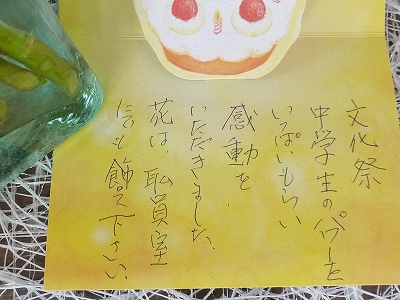 文化祭
中学生のパワーを
いっぱいもらい
感動を
いただきました。
花は、職員室
にでも飾って下さい。